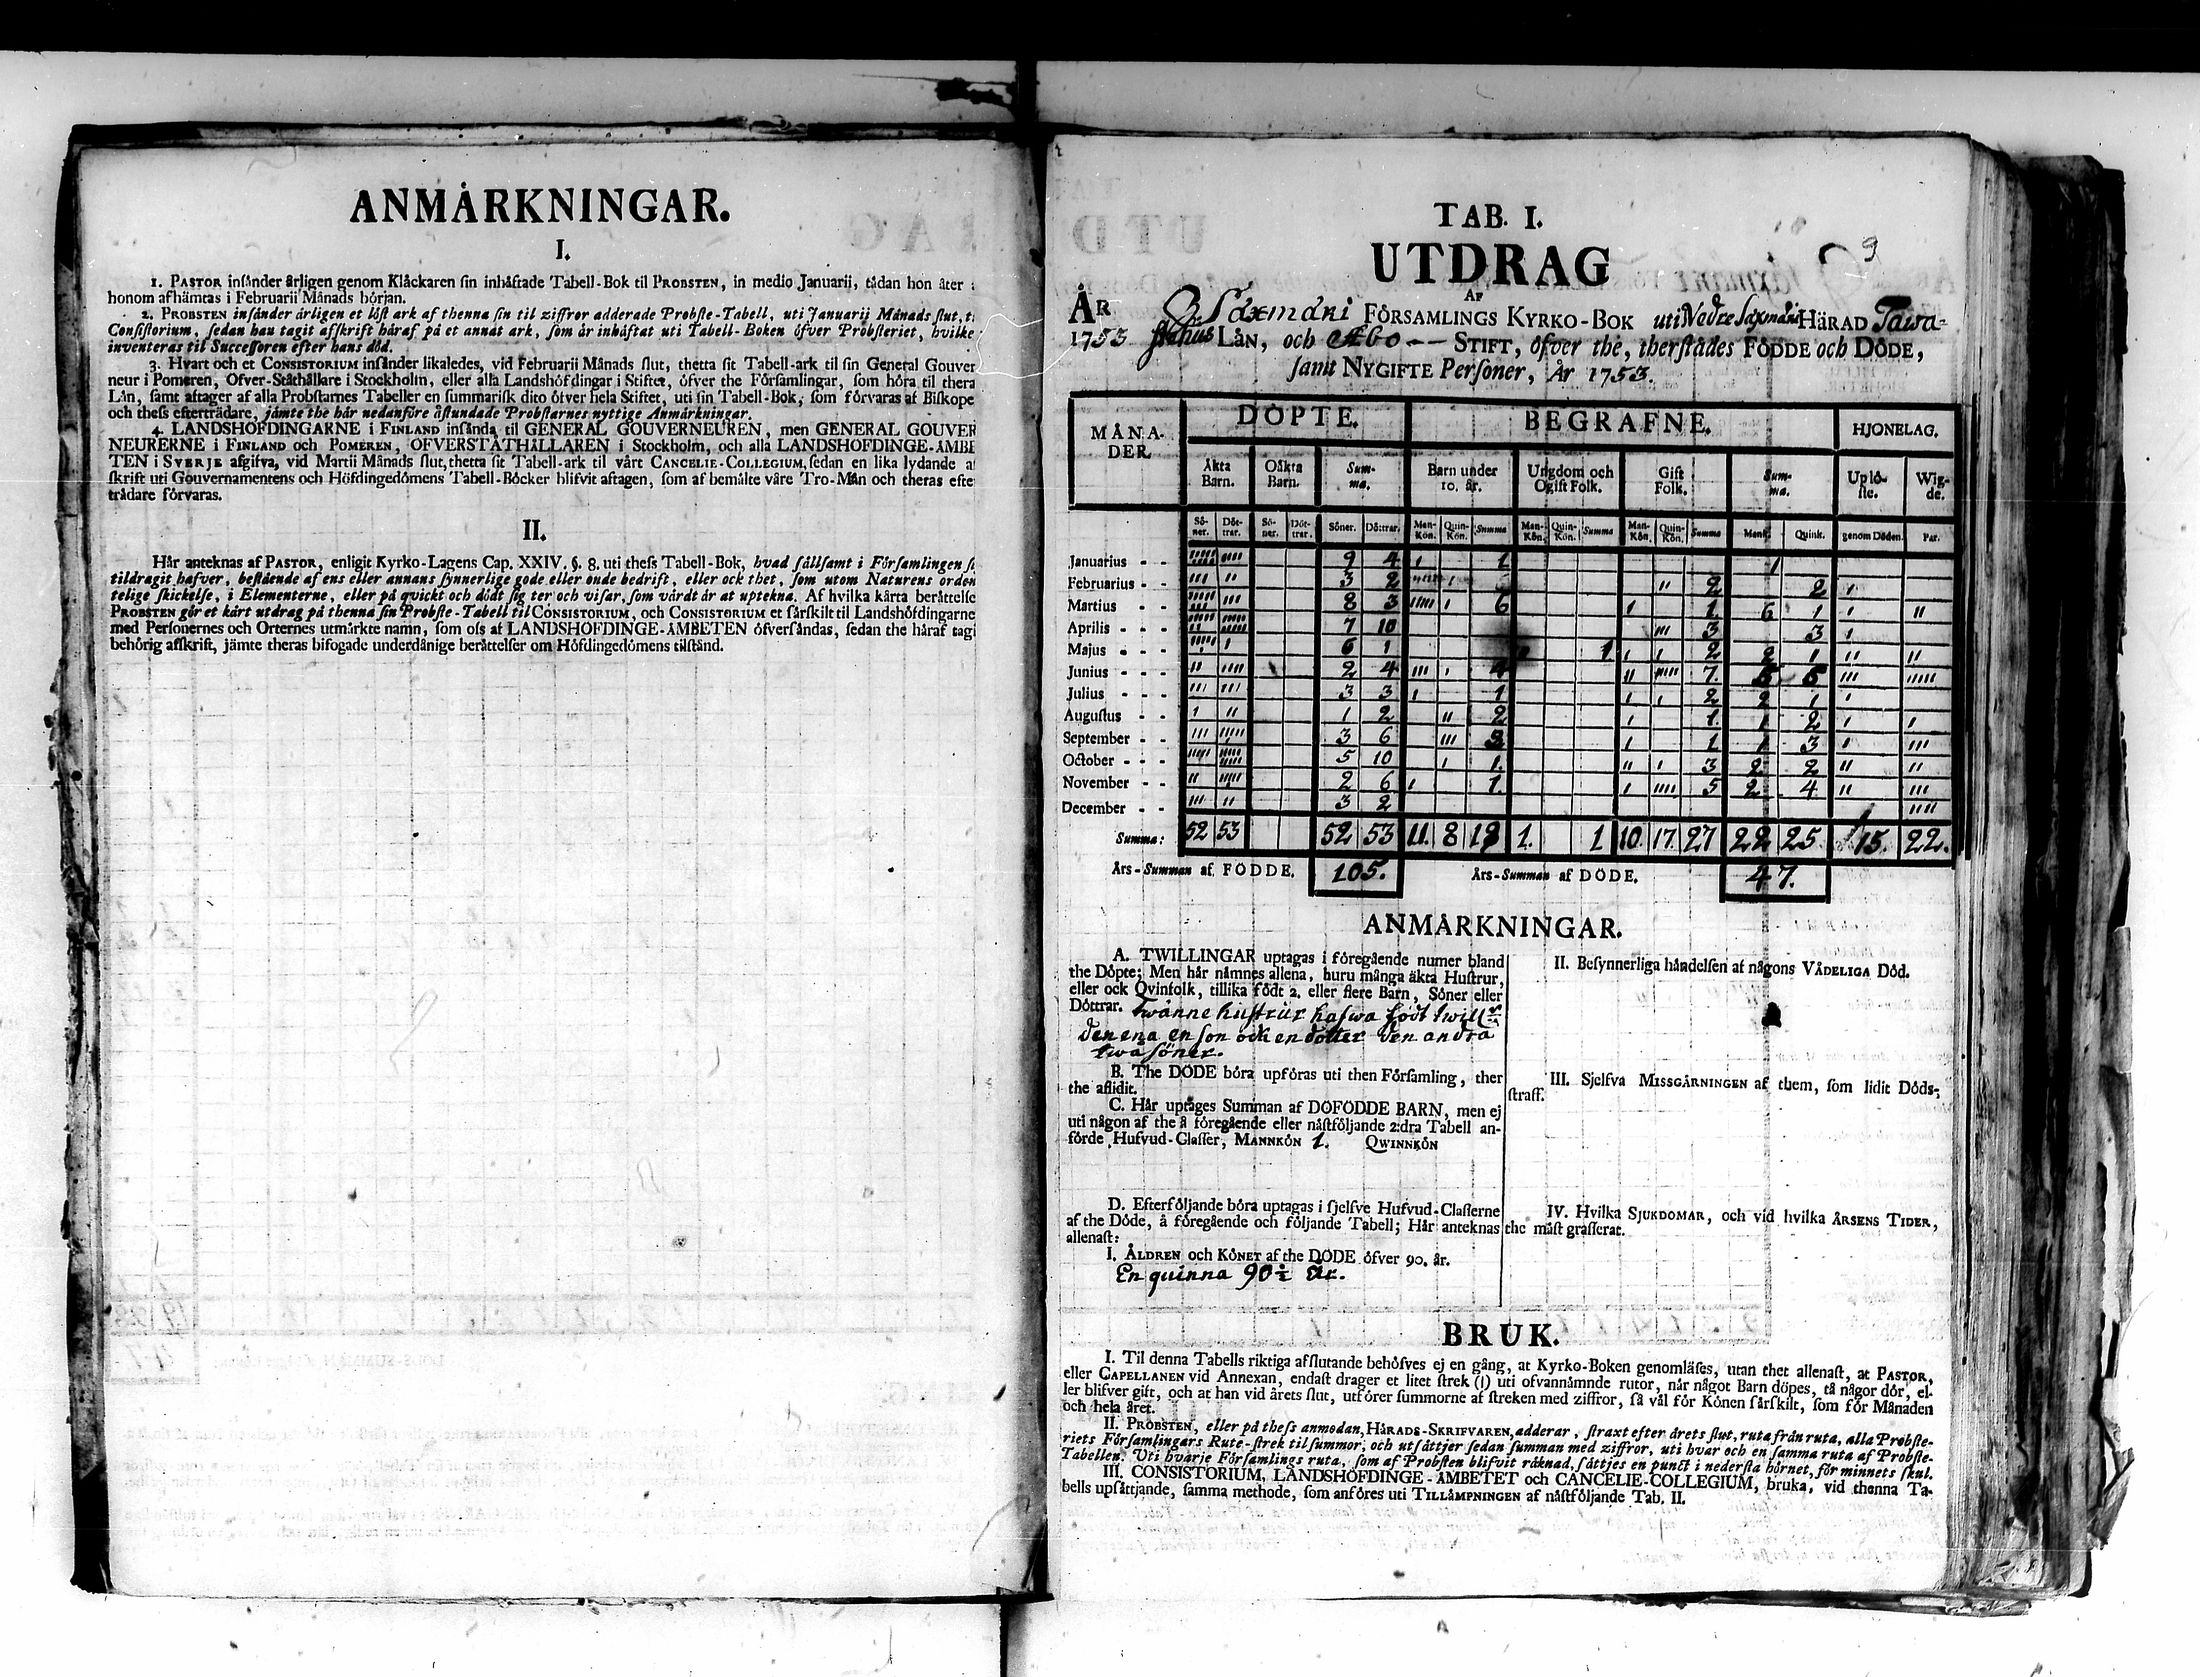 ANMÅRKNINGAR.
I.
1. PASTOR insånder årligen genom Klåckaren sin inhåftade Tabell-Bok til PROBSTEN, in medio Januarii, tådan hon åter
honom afhåmtas i Februarii Månads början.
2. PROBSTEN insånder årligen et löst ark af thenna sin til ziffror adderade Probste-Tabell, uti Januarij Månads slut, t
Consistorium, sedan han tagit afskrift håraf på et annat ark, som år inhåftat uti Tabell-Boken öfver Probsteriet, hvilke
inventeras til Successoren efter hans död.
3. Hvart och et CONSISTORIUM insånder likaledes, vid Februarii Månads slut, thetta sit Tabell-ark til sin General Gouver
neur i Pomeren, Öfver-Ståthållare i Stockholm, eller alla Landshöfdingar i Stiftet, öfver the Församlingar, som höra til thera
Lån, samt aftager af alla Probstarnes Tabeller en summarisk dito öfver hela Stiftet, uti sin Tabell-Bok, som förvaras af Biskope
och thess eftertrådare, jåmte the hår nedanföre åstundade Probstarnes nyttige Anmårkningar.
4. LANDSHÖFDINGARNE i FINLAND insånda til GENERAL GOUVERNEUREN, men GENERAL GOUVER
NEURERNE i FINLAND och POMEREN, ÖFVERSTÅTHÅLLAREN i Stockholm, och alla LANDSHÖFDINGE-ÅMBE
TEN i SVERJE afgifva, vid Martii Månads slut, thetta sit Tabell-ark til vårt CANCELIE-COLLEGIUM, sedan en lika lydande a
skrift uti Gouvernamentens och Höfdingedömens Tabell-Böcker blifvit aftagen, som af bemålte våre Tro-Mån och theras efte
trådare förvaras.
II.
Hår anteknas af PASTOR, enligit Kyrko-Lagens Cap. XXIV. §. 8. uti thess Tabell-Bok, hvad sållsamt i Församlingen s
tildragit hafver, bestående af ens eller annans synnerlige gode eller onde bedrift, eller ock thet, som utom Naturens orden
telige skickelse, i Elementerne, eller på qvickt och dödt sig ter och visar, som vårdt år at uptekna. Af hvilka kårta beråttelse
PROBSTEN gör et kårt utdrag på thenna sin Probste-Tabell til CONSISTORIUM, och CONSISTORIUM et sårskilt til Landshöfdingarne
med Personernes och Orternes utmårkte namn, som oss af LANDSHÖFDINGE-ÅMBETEN öfversåndas, sedan the håraf tagi
behörig afskrift, jåmte theras bifogade underdånige beråttelser om Höfdingedömens tilstånd.
9
TAB. I.
UTDRAG
AF
ÅR Saxmäki FÖRSAMLINGS KYRKO-BOK uti Nedre Saxmäki HÄRAD Tawa-
1753 stehus LÅN, och Åbo — STIFT, öfver the, therstådes FÖDDE och DÖDE,
samt NYGIFTE Personer, År 1753.
MÅNADER. DÖPTE. BEGRAFNE. HJONELAG.
Åkta Barn. Oåkta Barn. Summa. Barn under 10. år. Ungdom och Ogift Folk. Gift Folk. Summa. Uplöste. Wigde.
Söner. Döttrar. Söner. Döttrar. Söner. Döttrar. Mankön. Quinkön. Summa Mankön. Quinkön. Summa Mankön. Quinkön. Summa Mank. Quink. genom Döden. Par.
Januarius - - 9 4 1 1
Februarius - - 3 2 2 2
Martius - - 8 3 6 1. 6 1
Aprilis - - - 7 10 3 3
Majus - - - 6 1 1 2 2 1
Junius - - - 2 4 4 7. 6 5
Julius - - - 3 3 1 2 2 1
Augustus - - 1 2 2 1. 1 2
September - - 3 6 3 1 1 3
October - - - 5 10 1. 3 2 2
November - - 2 6 1. 5 2 4
December - - 3 2
Summa: 52 53 52 53 11. 8 19 1. 1 10. 17. 27 22 25. 15. 22.
Års-Summan af FÖDDE. 105. Års-Summan af DÖDE. 47.
ANMÅRKNINGAR.
A. TWILLINGAR uptagas i föregående numer bland
the Döpte; Men hår nåmnes allena, huru många äkta Hustrur,
eller ock Qvinfolk, tillika födt 2. eller flere Barn, Söner eller
Döttrar. Twänne hustrur hafwa födt twill
den ena en son ock en dotter den andra
twå söner.
B. The DÖDE böra upföras uti then Församling, ther
the aflidit.
C. Hår uptages Summan af DÖFÖDDE BARN, men ej
uti någon af the å föregående eller nåstföljande 2:dra Tabell an-
förde Hufvud-Classer, MANNKÖN 1. QWINNKÖN
D. Efterföljande böra uptagas i sjelfve Hufvud-Classerne
af the Döde, å föregående och följande Tabell; Hår anteknas
allenast:
I. ÅLDREN och KÖNET af the DÖDE öfver 90. år.
En quinna 90½ År.
II. Besynnerliga håndelsen af någons VÅDELIGA Död.
III. Sjelfva MISSGÅRNINGEN af them, som lidit Döds-
straff.
IV. Hvilka SJUKDOMAR, och vid hvilka ÅRSENS TIDER,
the måst grasserat.
BRUK.
I. Til denna Tabells riktiga afslutande behöfves ej en gång, at Kyrko-Boken genomläses, utan thet allenast, at PASTOR,
eller CAPELLANEN vid Annexan, endast drager et litet strek (|) uti ofvannåmnde rutor, når något Barn döpes, tå någor dör, el-
ler blifver gift, och at han vid årets slut, utförer summorne af streken med ziffror, så vål för Könen sårskilt, som för Månaden
och hela året.
II. PROBSTEN, eller på thess anmodan, HÅRADS-SKRIFVAREN, adderar, straxt efter årets slut, ruta från ruta, alla Probste-
riets Församlingars Rute-strek til summor, och utsåttjer sedan summan med ziffror, uti hvar och en samma ruta af Probste-
Tabellen. Uti hvarje Församlings ruta, som af Probsten blifvit råknad, såttjes en punct i nedersta hörnet, för minnets skul.
III. CONSISTORIUM, LANDSHÖFDINGE-ÅMBETET och CANCELIE-COLLEGIUM, bruka, vid thenna Ta-
bells upsåttjande, samma methode, som anföres uti TILLÅMPNINGEN af nåstföljande Tab. II.